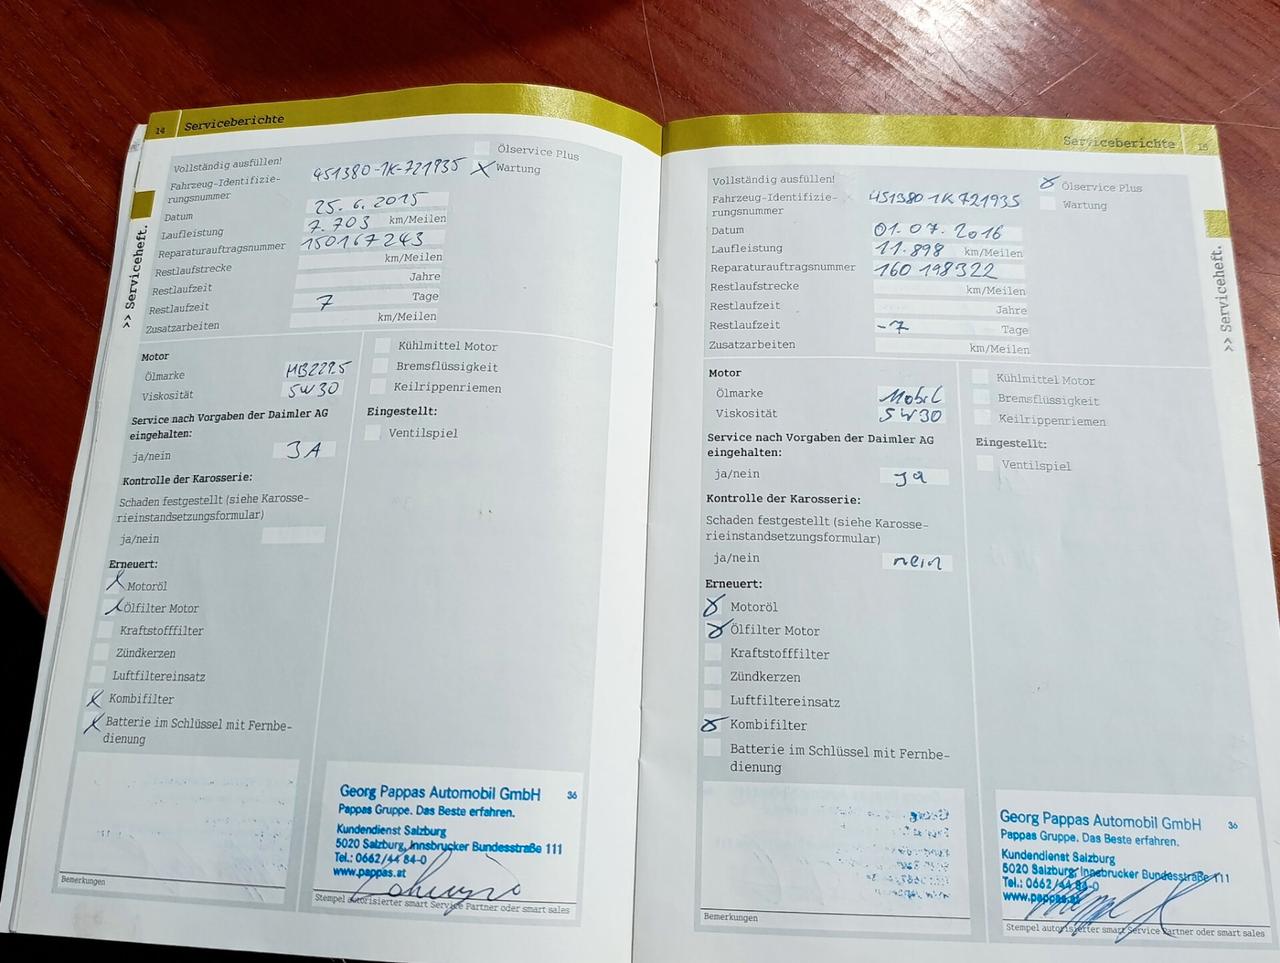 14 Serviceberichte
>> Serviceheft.
Vollständig ausfüllen!
Ölservice Plus
X Wartung
Fahrzeug-Identifizie-
rungsnummer 451380-1K-721935
Datum 25.6.2015
Laufleistung 7.703 km/Meilen
Reparaturauftragsnummer 150167243
Restlaufstrecke km/Meilen
Restlaufzeit Jahre
Restlaufzeit 7 Tage
Zusatzarbeiten km/Meilen
Motor
Ölmarke MB229.5
Viskosität 5W30
Service nach Vorgaben der Daimler AG
eingehalten:
ja/nein JA
Kontrolle der Karosserie:
Schaden festgestellt (siehe Karosse-
rieinstandsetzungsformular)
ja/nein
Erneuert:
X Motoröl
X Ölfilter Motor
Kraftstofffilter
Zündkerzen
Luftfiltereinsatz
X Kombifilter
X Batterie im Schlüssel mit Fernbe-
dienung
Kühlmittel Motor
Bremsflüssigkeit
Keilrippenriemen
Eingestellt:
Ventilspiel
Bemerkungen
Georg Pappas Automobil GmbH 36
Pappas Gruppe. Das Beste erfahren.
Kundendienst Salzburg
5020 Salzburg, Innsbrucker Bundesstraße 111
Tel.: 0662/44 84-0
www.pappas.at
Stempel autorisierter smart Service Partner oder smart sales
Serviceberichte 15
>> Serviceheft.
Vollständig ausfüllen!
X Ölservice Plus
Wartung
Fahrzeug-Identifizie-
rungsnummer 451380 1K 721935
Datum 01.07.2016
Laufleistung 11.898 km/Meilen
Reparaturauftragsnummer 160 198322
Restlaufstrecke km/Meilen
Restlaufzeit Jahre
Restlaufzeit -7 Tage
Zusatzarbeiten km/Meilen
Motor
Ölmarke Mobil
Viskosität 5W30
Service nach Vorgaben der Daimler AG
eingehalten:
ja/nein ja
Kontrolle der Karosserie:
Schaden festgestellt (siehe Karosse-
rieinstandsetzungsformular)
ja/nein nein
Erneuert:
X Motoröl
X Ölfilter Motor
Kraftstofffilter
Zündkerzen
Luftfiltereinsatz
X Kombifilter
Batterie im Schlüssel mit Fernbe-
dienung
Kühlmittel Motor
Bremsflüssigkeit
Keilrippenriemen
Eingestellt:
Ventilspiel
Bemerkungen
Georg Pappas Automobil GmbH 36
Pappas Gruppe. Das Beste erfahren.
Kundendienst Salzburg
5020 Salzburg, Innsbrucker Bundesstraße 111
Tel.: 0662/44 84-0
www.pappas.at
Stempel autorisierter smart Service Partner oder smart sales